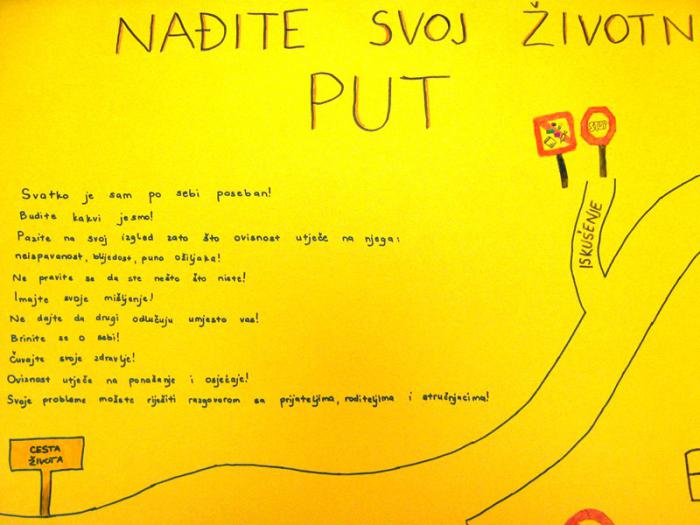 NAĐITE SVOJ ŽIVOTN
PUT
STOP
Svatko je sam po sebi poseban!
Budite kakvi jesmo!
Pazite na svoj izgled zato što ovisnost utječe na njega:
neispavanost, blijedost, puno ožiljaka!
Ne pravite se da ste nešto što niste!
Imajte svoje mišljenje!
Ne dajte da drugi odlučuju umjesto vas!
Brinite se o sebi!
Čuvajte svoje zdravlje!
Ovisnost utječe na ponašanje i osjećaje!
Svoje probleme možete riješiti razgovorom sa prijateljima, roditeljima i stručnjacima!
ISKUŠENJE
CESTA
ŽIVOTA